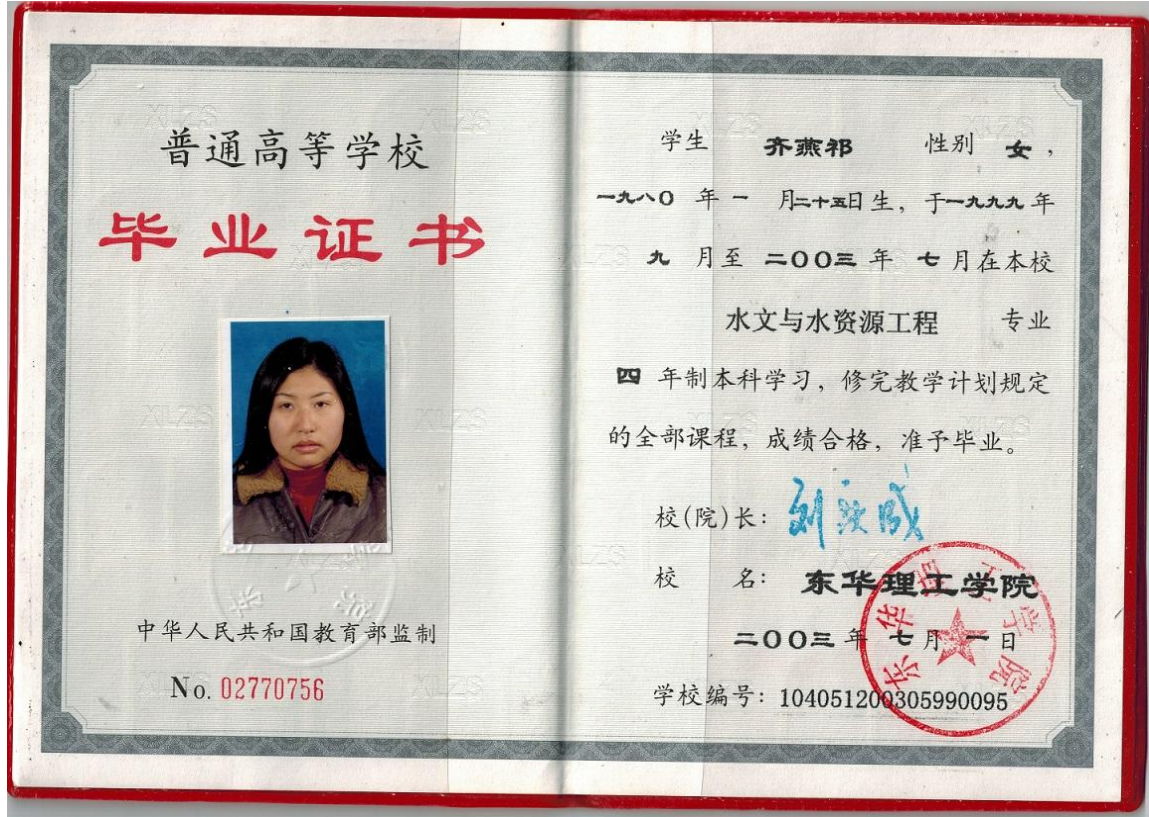 普通高等学校
毕业证书
中华人民共和国教育部监制
No. 02770756
学生 齐燕祁 性别 女，
一九八〇 年 一 月二十五日生，于一九九九年
九 月至 二〇〇三 年 七 月在本校
水文与水资源工程 专业
四 年制本科学习，修完教学计划规定
的全部课程，成绩合格，准予毕业。
校(院)长：
校 名：东华理工学院
二〇〇三 年 七 月 一 日
学校编号：104051200305990095
东华理工学院
XLZS